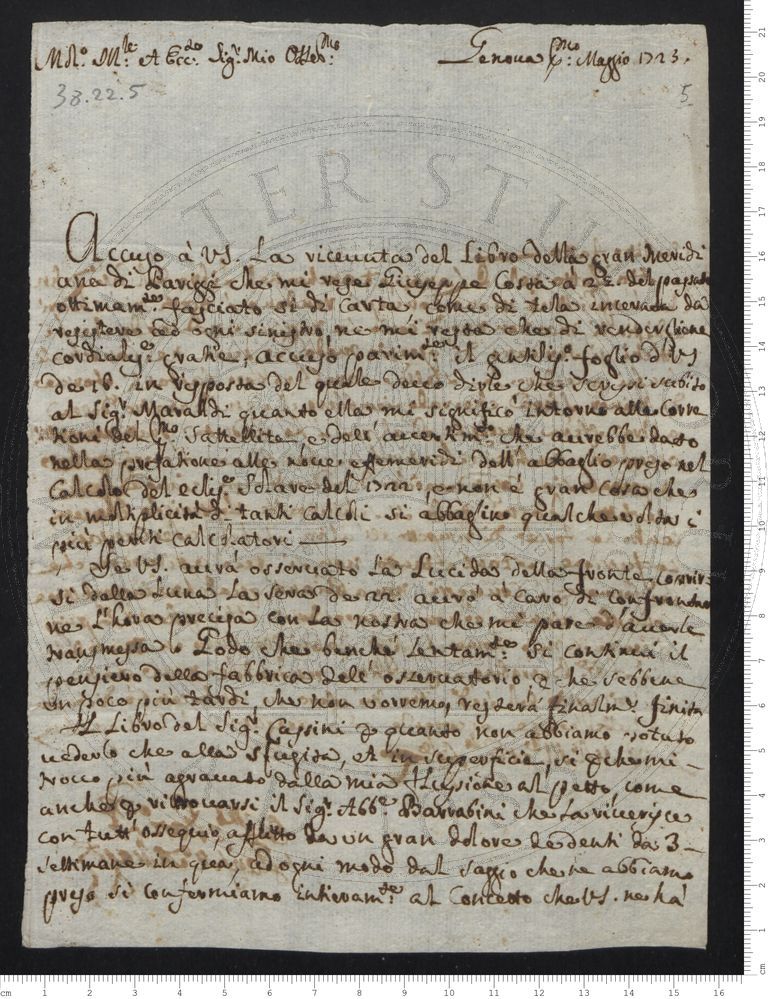 Mol.o Ill.e et Ecc.te Sig.r Mio Osser.mo
Genova p.mo Maggio 1723.
38.22.5
5
Accuso à VS. La riceuuta del Libro della gran Meridi
ana di Pariggi che mi rese Giuseppe Costa à 22 del passato
ottimam.te fasciato si di Carta come di tela incerata da
resistere ad ogni sinistro, ne mi resta che di renderglione
cordialiss.e gratie, accuso parim.te il gentiliss.o foglio d'VS
de 16. in risposta del quale deuo dirle che scrissi subito
al Sig.r Maraldi quanto ella mi significò intorno alle Corre
tioni del p.mo Sattellite, e dell' auertim.to che aurebbe dato
nella prefatione alle nòue effemeridi dell' abbaglio preso nel
Calcolo del ecliss.e Solare del 1722, e non è gran cosa che
in moltiplicità di tanti Calcoli si abbaglino qualche uolta i
più periti Calcolatori
Se VS. aurà osseruato La Lucida della fronte
si dalla Luna La sera de 22. aurò à Caro di Confrontar
ne L'hora precisa con La nostra che mi pare d'auerle
transmessa. Godo che benche lentam.te si continui il
pensiero della fabbrica dell' osseruatorio che sebbene
un poco più tardi, che non uorremo, resterà finalm.e finita
Il Libro del Sig.r Cassini p quanto non abbiamo potuto
uederlo che alla sfugita, et in superficie, si p che mi
trouo più agrauato dalla mia flussione al petto, come
anche p ritrouarsi il Sig.r Abb.e Barrabini che La riuerisce
con tutt' ossequio, afflitto da un gran dolore de denti da 3
settimane in qua, ad ogni modo dal saggio che ne abbiamo
preso si confermiamo intieram.te al Concetto che VS. ne hà